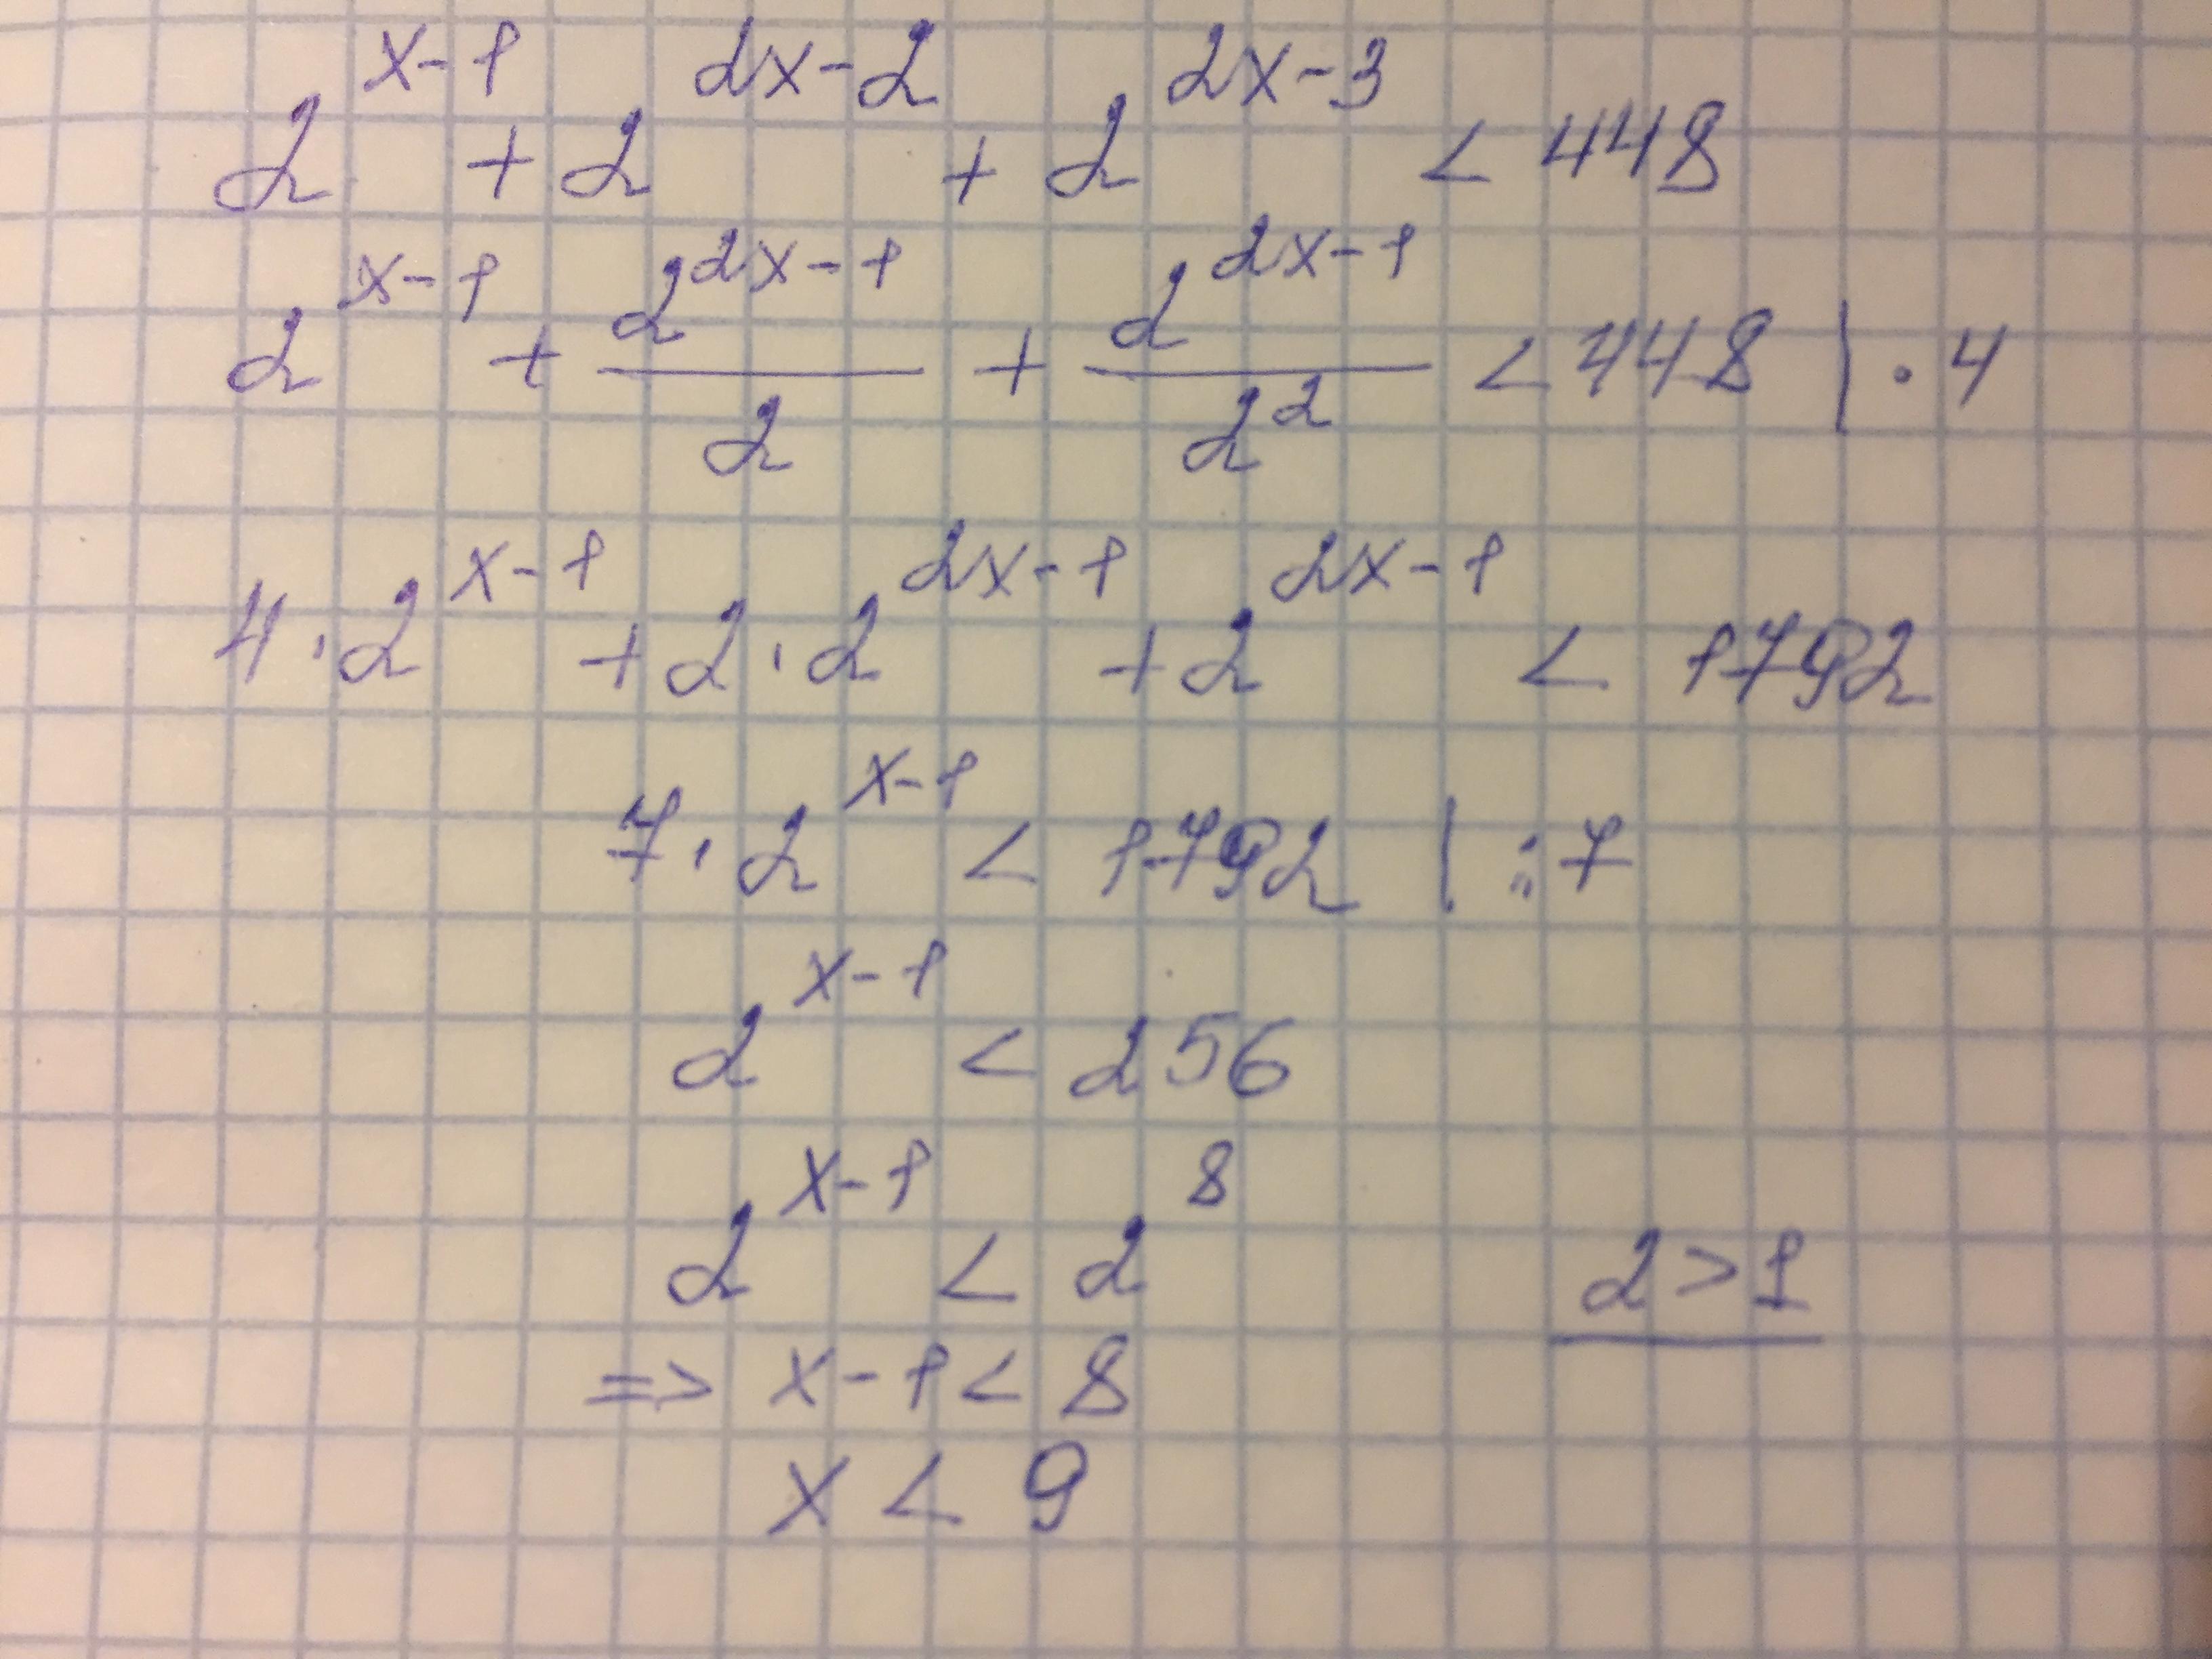 2^{x-1} + 2^{2x-2} + 2^{2x-3} < 448
2^{x-1} + \frac{2^{2x-1}}{2} + \frac{2^{2x-1}}{2^2} < 448 | · 4
4 · 2^{x-1} + 2 · 2^{2x-1} + 2^{2x-1} < 1792
7 · 2^{x-1} < 1792 | : 7
2^{x-1} < 256
2^{x-1} < 2^8    2 > 1
=> x - 1 < 8
x < 9